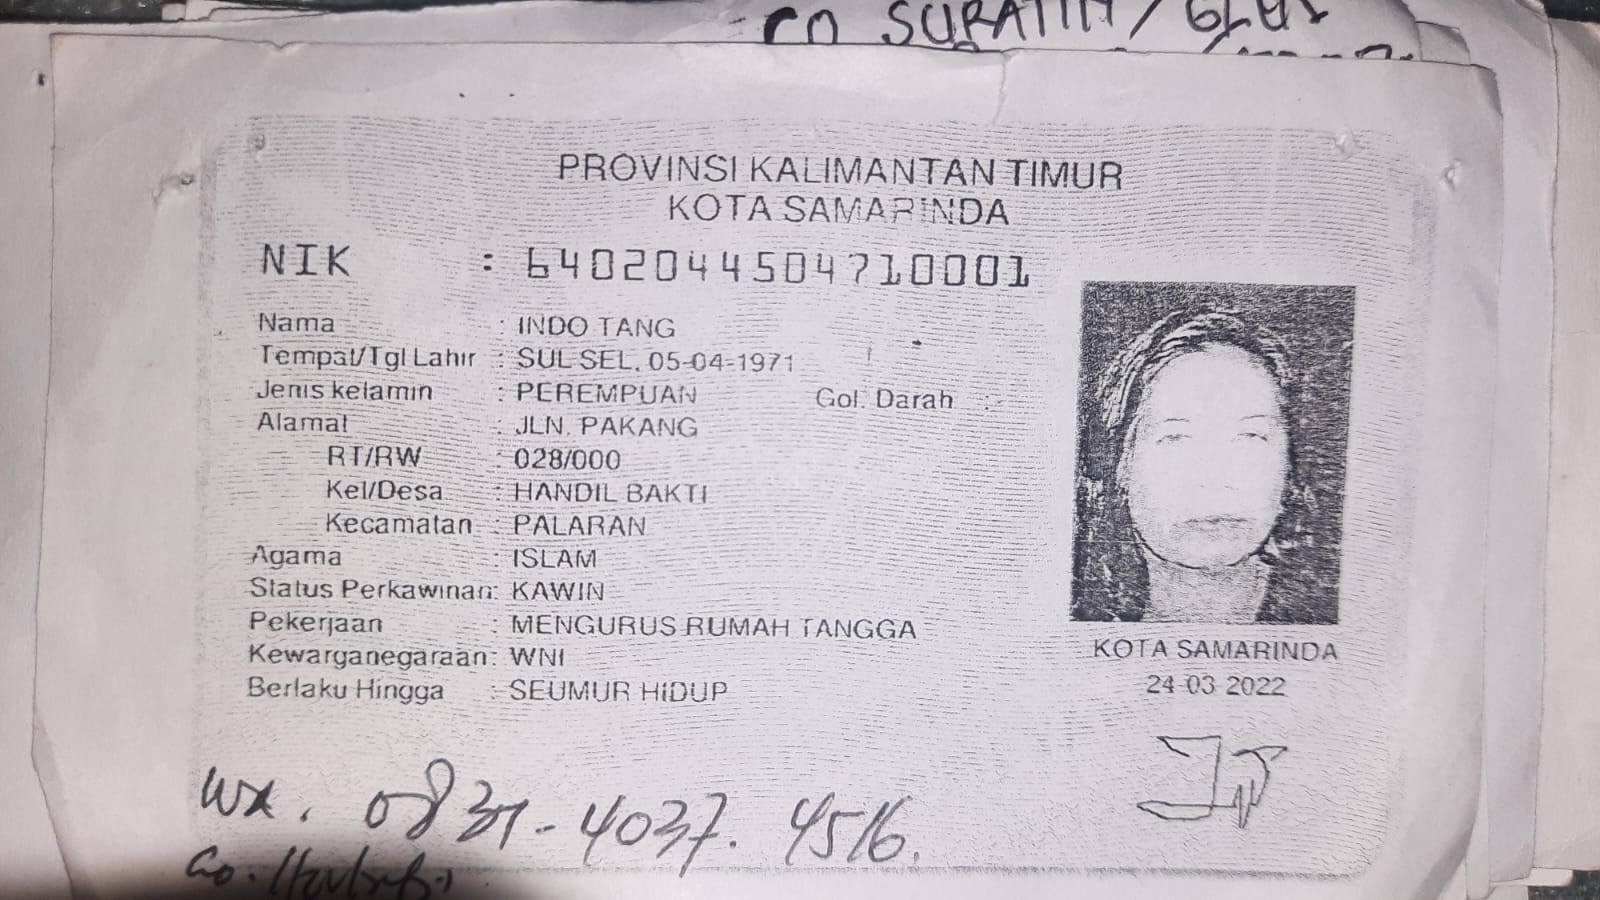 CO SURATIH/GLUI
PROVINSI KALIMANTAN TIMUR
KOTA SAMARINDA
NIK : 6402044504710001
Nama : INDO TANG
Tempat/Tgl Lahir : SUL SEL, 05-04-1971
Jenis kelamin : PEREMPUAN Gol. Darah :-
Alamat : JLN. PAKANG
RT/RW : 028/000
Kel/Desa : HANDIL BAKTI
Kecamatan : PALARAN
Agama : ISLAM
Status Perkawinan: KAWIN
Pekerjaan : MENGURUS RUMAH TANGGA
Kewarganegaraan: WNI
Berlaku Hingga : SEUMUR HIDUP
KOTA SAMARINDA
24-03-2022
WA. 0831-4037.4516.
Co.